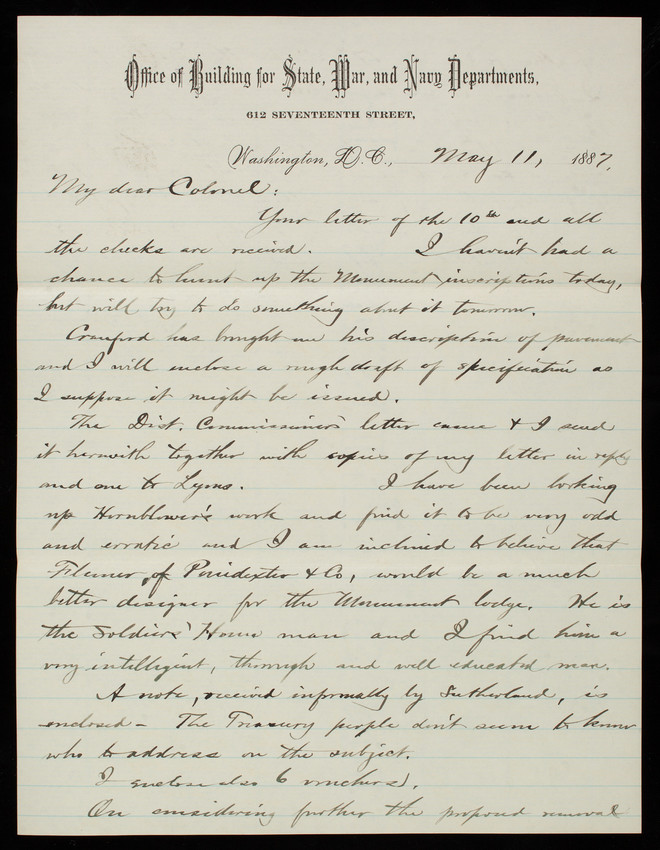 Office of Building for State, War, and Navy Departments,
612 SEVENTEENTH STREET,
Washington, D.C., May 11, 1887.
My dear Colonel:
Your letter of the 10th and all
the checks are received. I havent had a
chance to hunt up the Monument inscriptions today,
but will try to do something about it tomorrow.
Cranford has brought me his description of pavement
and I will enclose a rough draft of specification as
I suppose it might be issued.
The Dist. Commissioners' letter came & I send
it herewith together with copies of my letter in reply
and one to Lyons. I have been looking
up Hornblower's work and find it to be very odd
and erratic and I am inclined to believe that
of Poindexter & Co, would be a much
better designer for the Monument lodge. He is
the Soldiers' Home man and I find him a
very intelligent, thorough and well educated man.
A note, received informally by Sutherland, is
enclosed – The Treasury people don't seem to know
who to address on the subject.
I enclose also 6 vouchers.
On considering further the proposed removal